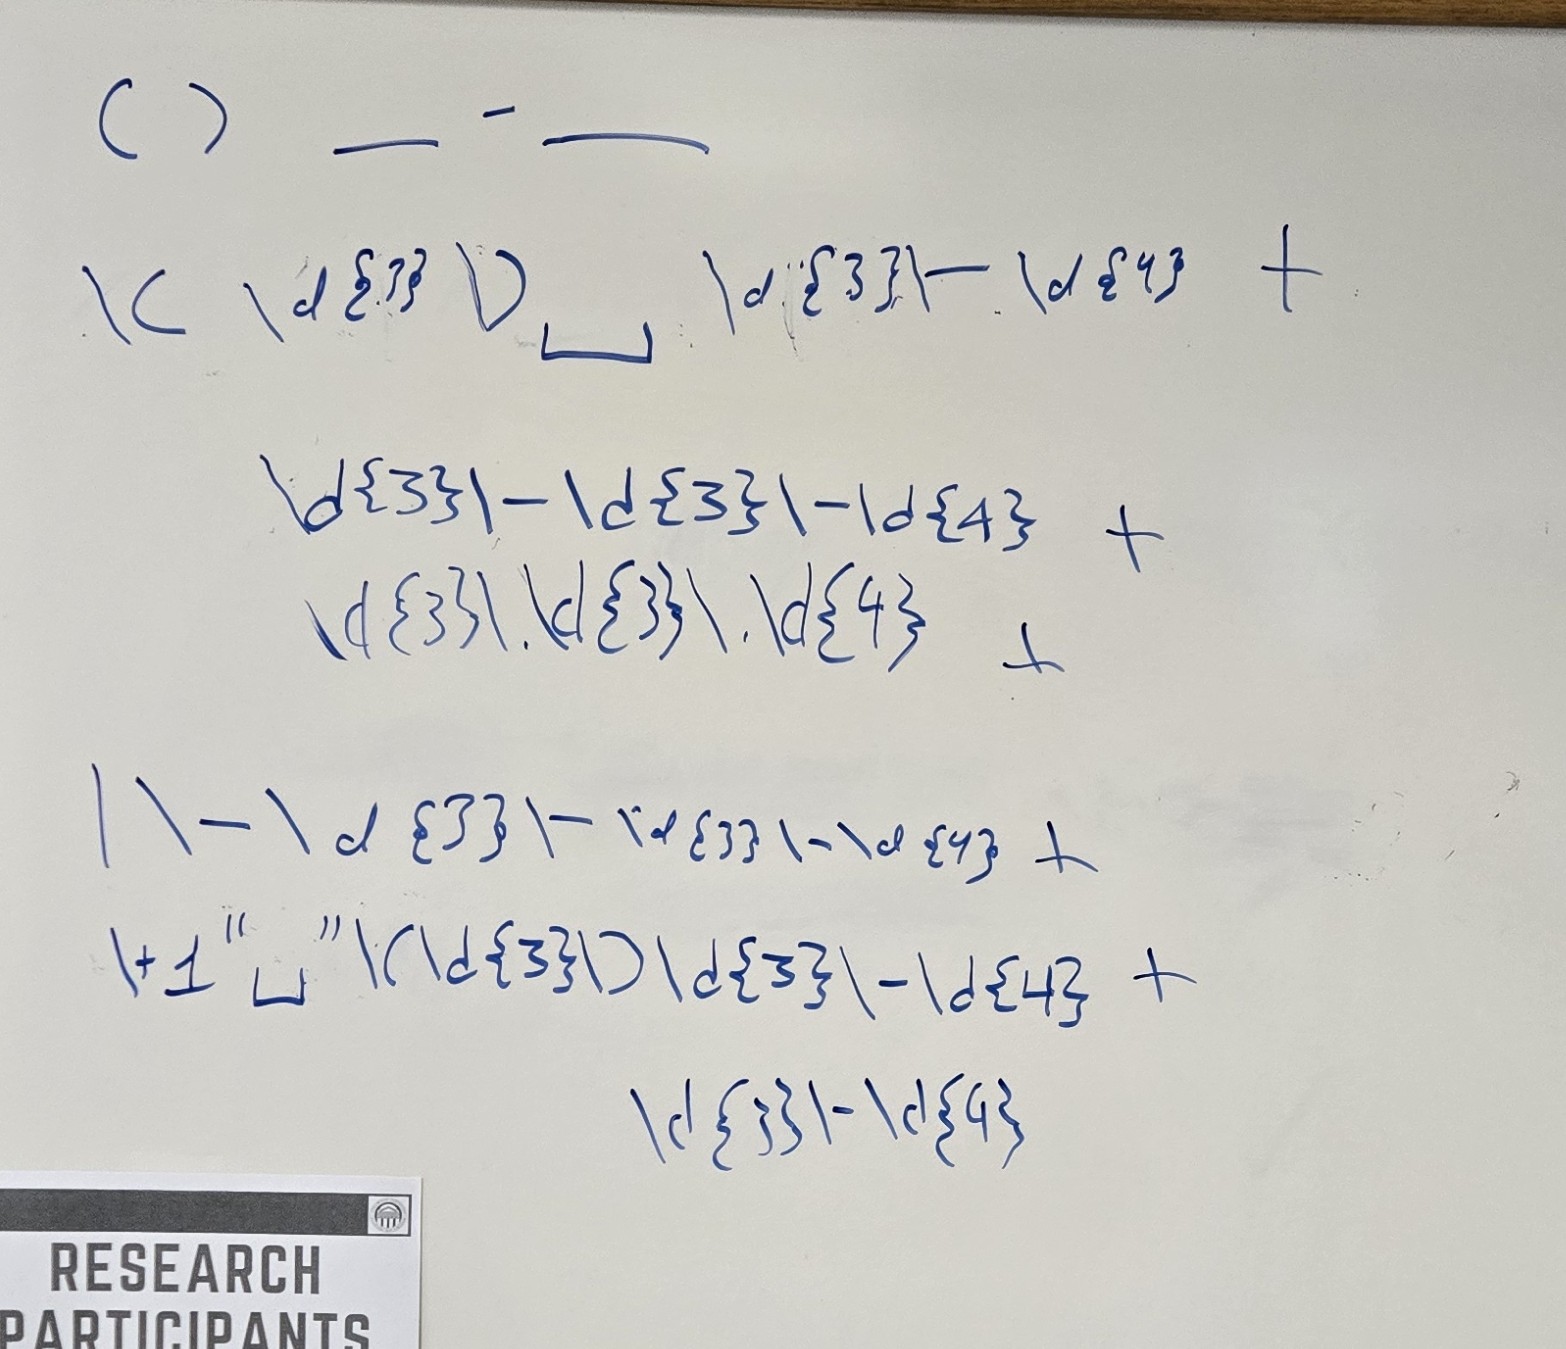 ( ) __ - ___
\( \d{3} \)␣ \d{3}\- \d{4} +
\d{3}\-\d{3}\-\d{4} +
\d{3}\.\d{3}\.\d{4} +
1\-\d{3}\-\d{3}\-\d{4} +
\+1"␣"\(\d{3}\)\d{3}\-\d{4} +
\d{3}\-\d{4}
RESEARCH
PARTICIPANTS